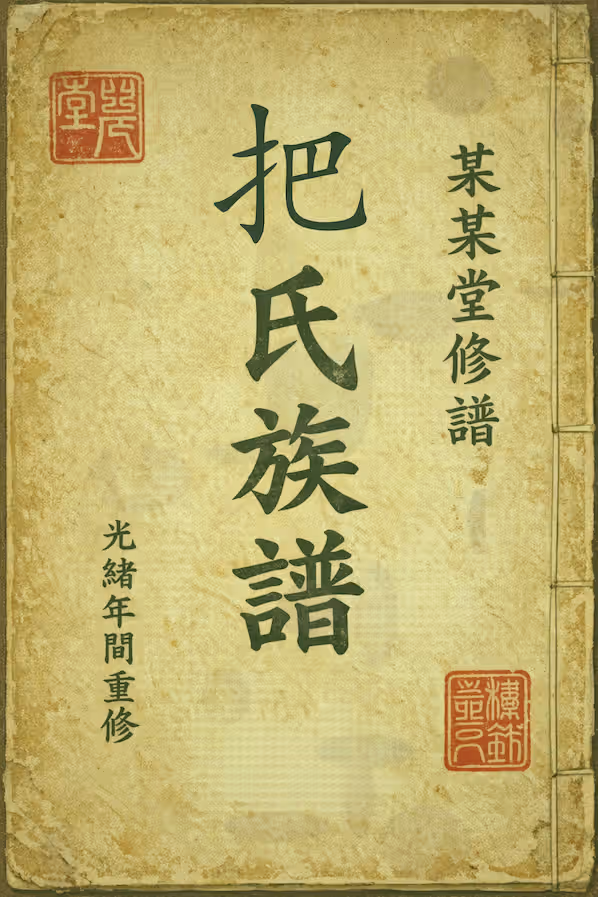 某某堂修譜
把氏族譜
光緒年間重修